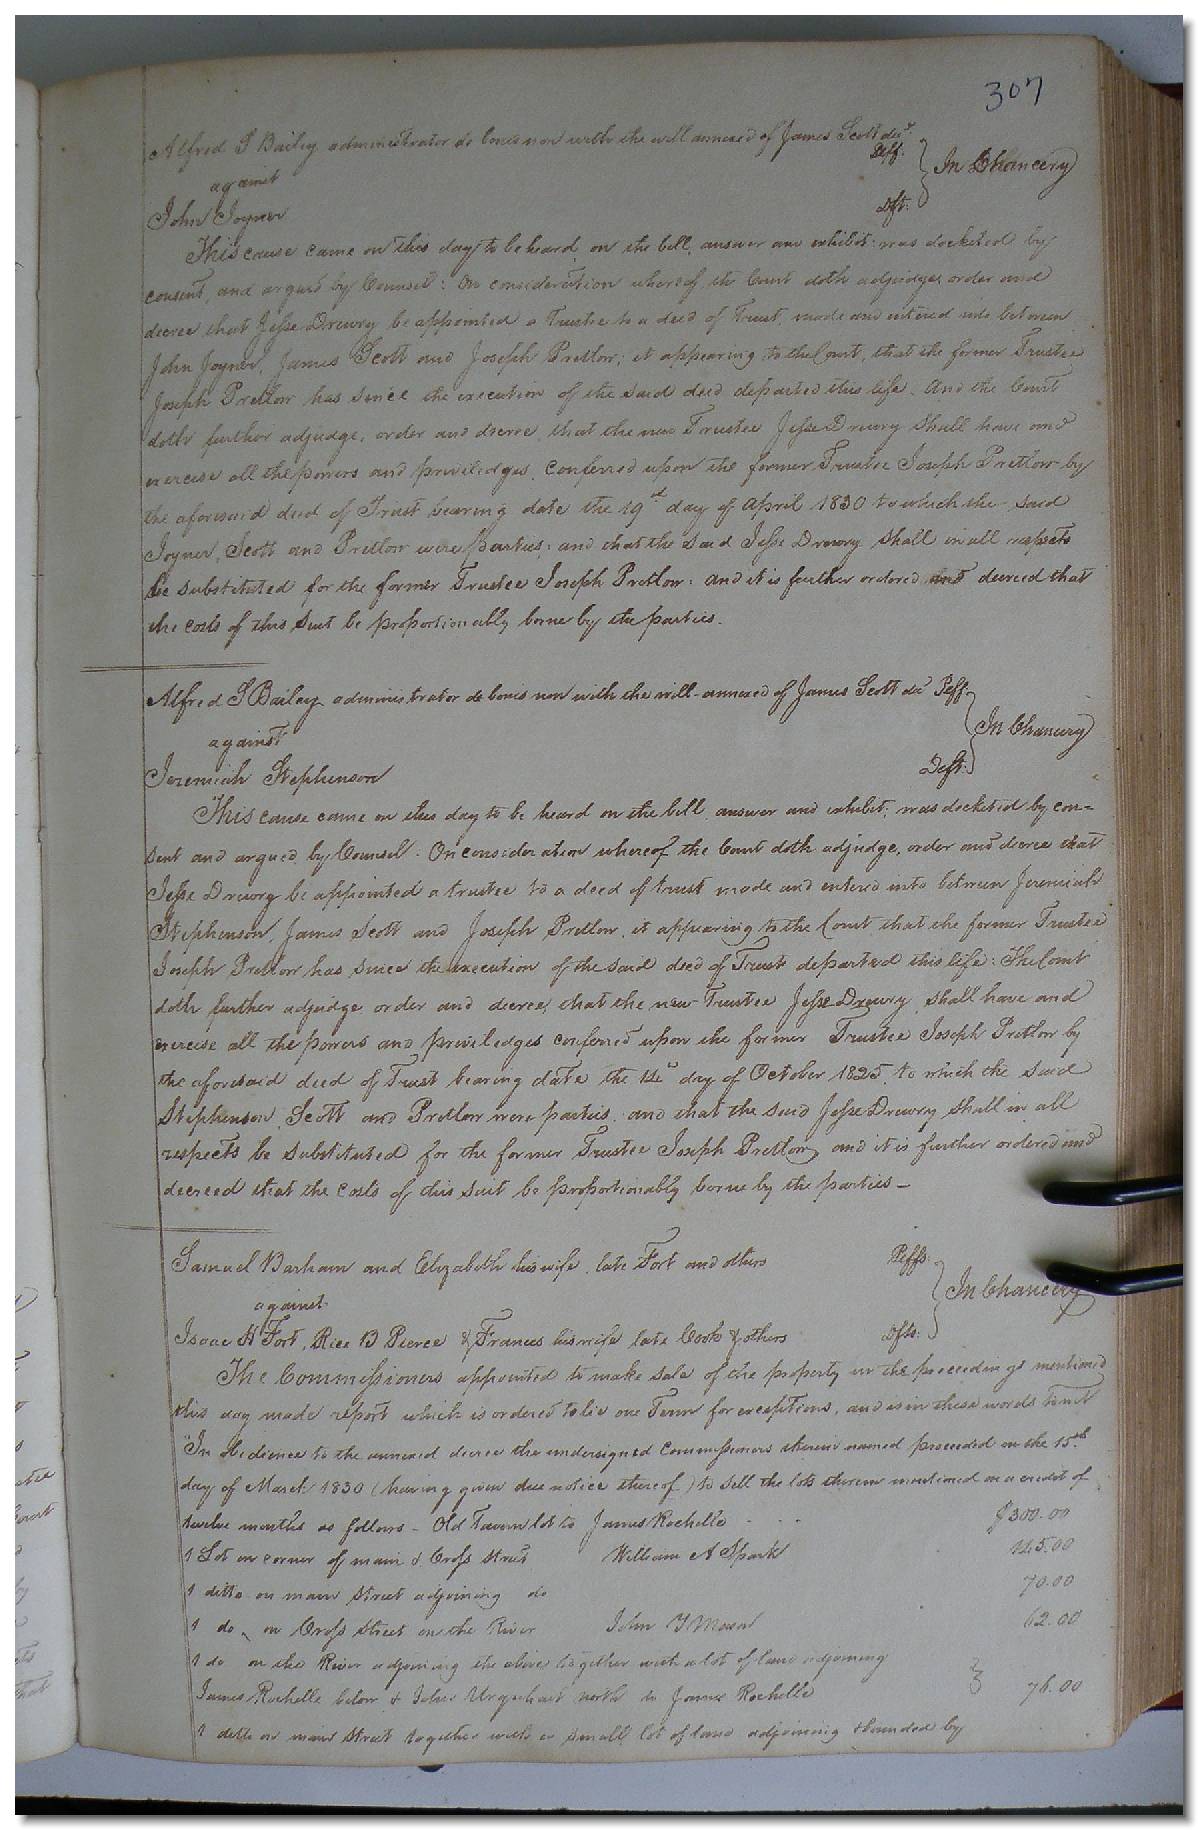 307
Alfred S Bailey administrator de bonis non with the will annexed of James Scott decd.
Plff.
In Chancery
against
Dft.
John Joyner
This cause came on this day to be heard on the bill, answer and exhibit: was docketed by
consent, and argued by Counsel: On consideration whereof, the Court doth adjudge, order and
decree that Jesse Drewry be appointed a Trustee to a deed of Trust, made and entered into between
John Joyner, James Scott and Joseph Pretlow; it appearing to the Court, that the former Trustee
Joseph Pretlow has since the execution of the said deed departed this life. And the Court
doth further adjudge, order and decree, that the new Trustee Jesse Drewry shall have and
exercise all the powers and priviledges, conferred upon the former Trustee Joseph Pretlow by
the aforesaid deed of Trust bearing date the 19th day of April 1830 to which the said
Joyner, Scott and Pretlow were parties; and that the said Jesse Drewry shall in all respects
be substituted for the former Trustee Joseph Pretlow: and it is further ordered and decreed that
the costs of this suit be proportionably borne by the parties.
Alfred S Bailey administrator de bonis non with the will annexed of James Scott decd Plff.
against
In Chancery
Jeremiah Stephenson
Deft.
This cause came on this day to be heard on the bill, answer and exhibit; was docketed by con-
sent and argued by Counsel. On consideration whereof the Court doth adjudge, order and decree that
Jesse Drewry be appointed a trustee to a deed of trust made and entered into between Jeremiah
Stephenson, James Scott and Joseph Pretlow, it appearing to the Court that the former Trustee
Joseph Pretlow has since the execution of the said deed of Trust departed this life: The Court
doth further adjudge order and decree, that the new Trustee Jesse Drewry, shall have and
exercise all the powers and priviledges conferred upon the former Trustee Joseph Pretlow by
the aforesaid deed of Trust bearing date the day of October 1825, to which the said
Stephenson, Scott and Pretlow were parties, and that the said Jesse Drewry shall in all
respects be substituted for the former Trustee Joseph Pretlow, and it is further ordered and
decreed that the costs of this suit be proportionably borne by the parties –
Samuel Barham and Elizabeth his wife, late Fort and others Plffs.
against
In Chancery
Isaac H Fort, Rice B Pierce & Frances his wife late Cook & others Dfts.
The Commissioners appointed to make sale of the property in the proceedings mentioned
this day made report which is ordered to lie one Term for exceptions, and is in these words to wit
"In obedience to the annexed decree the undersigned Commissioners therein named proceeded on the 15th
day of March 1830 (having given due notice thereof) to sell the lots therein mentioned on a credit of
twelve months as follows – Old Tavern lot to James Rochelle - - - $300.00
1 Lot on corner of main & Cross Street William A Spark 145.00
1 ditto on main Street adjoining do 70.00
1 do on Cross Street on the River John Y Mason 62.00
1 do on the River adjoining the above together with a lot of land adjoining
James Rochelle below & John Urquhart north to James Rochelle 76.00
1 ditto on main Street together with a small lot of land adjoining & bounded by